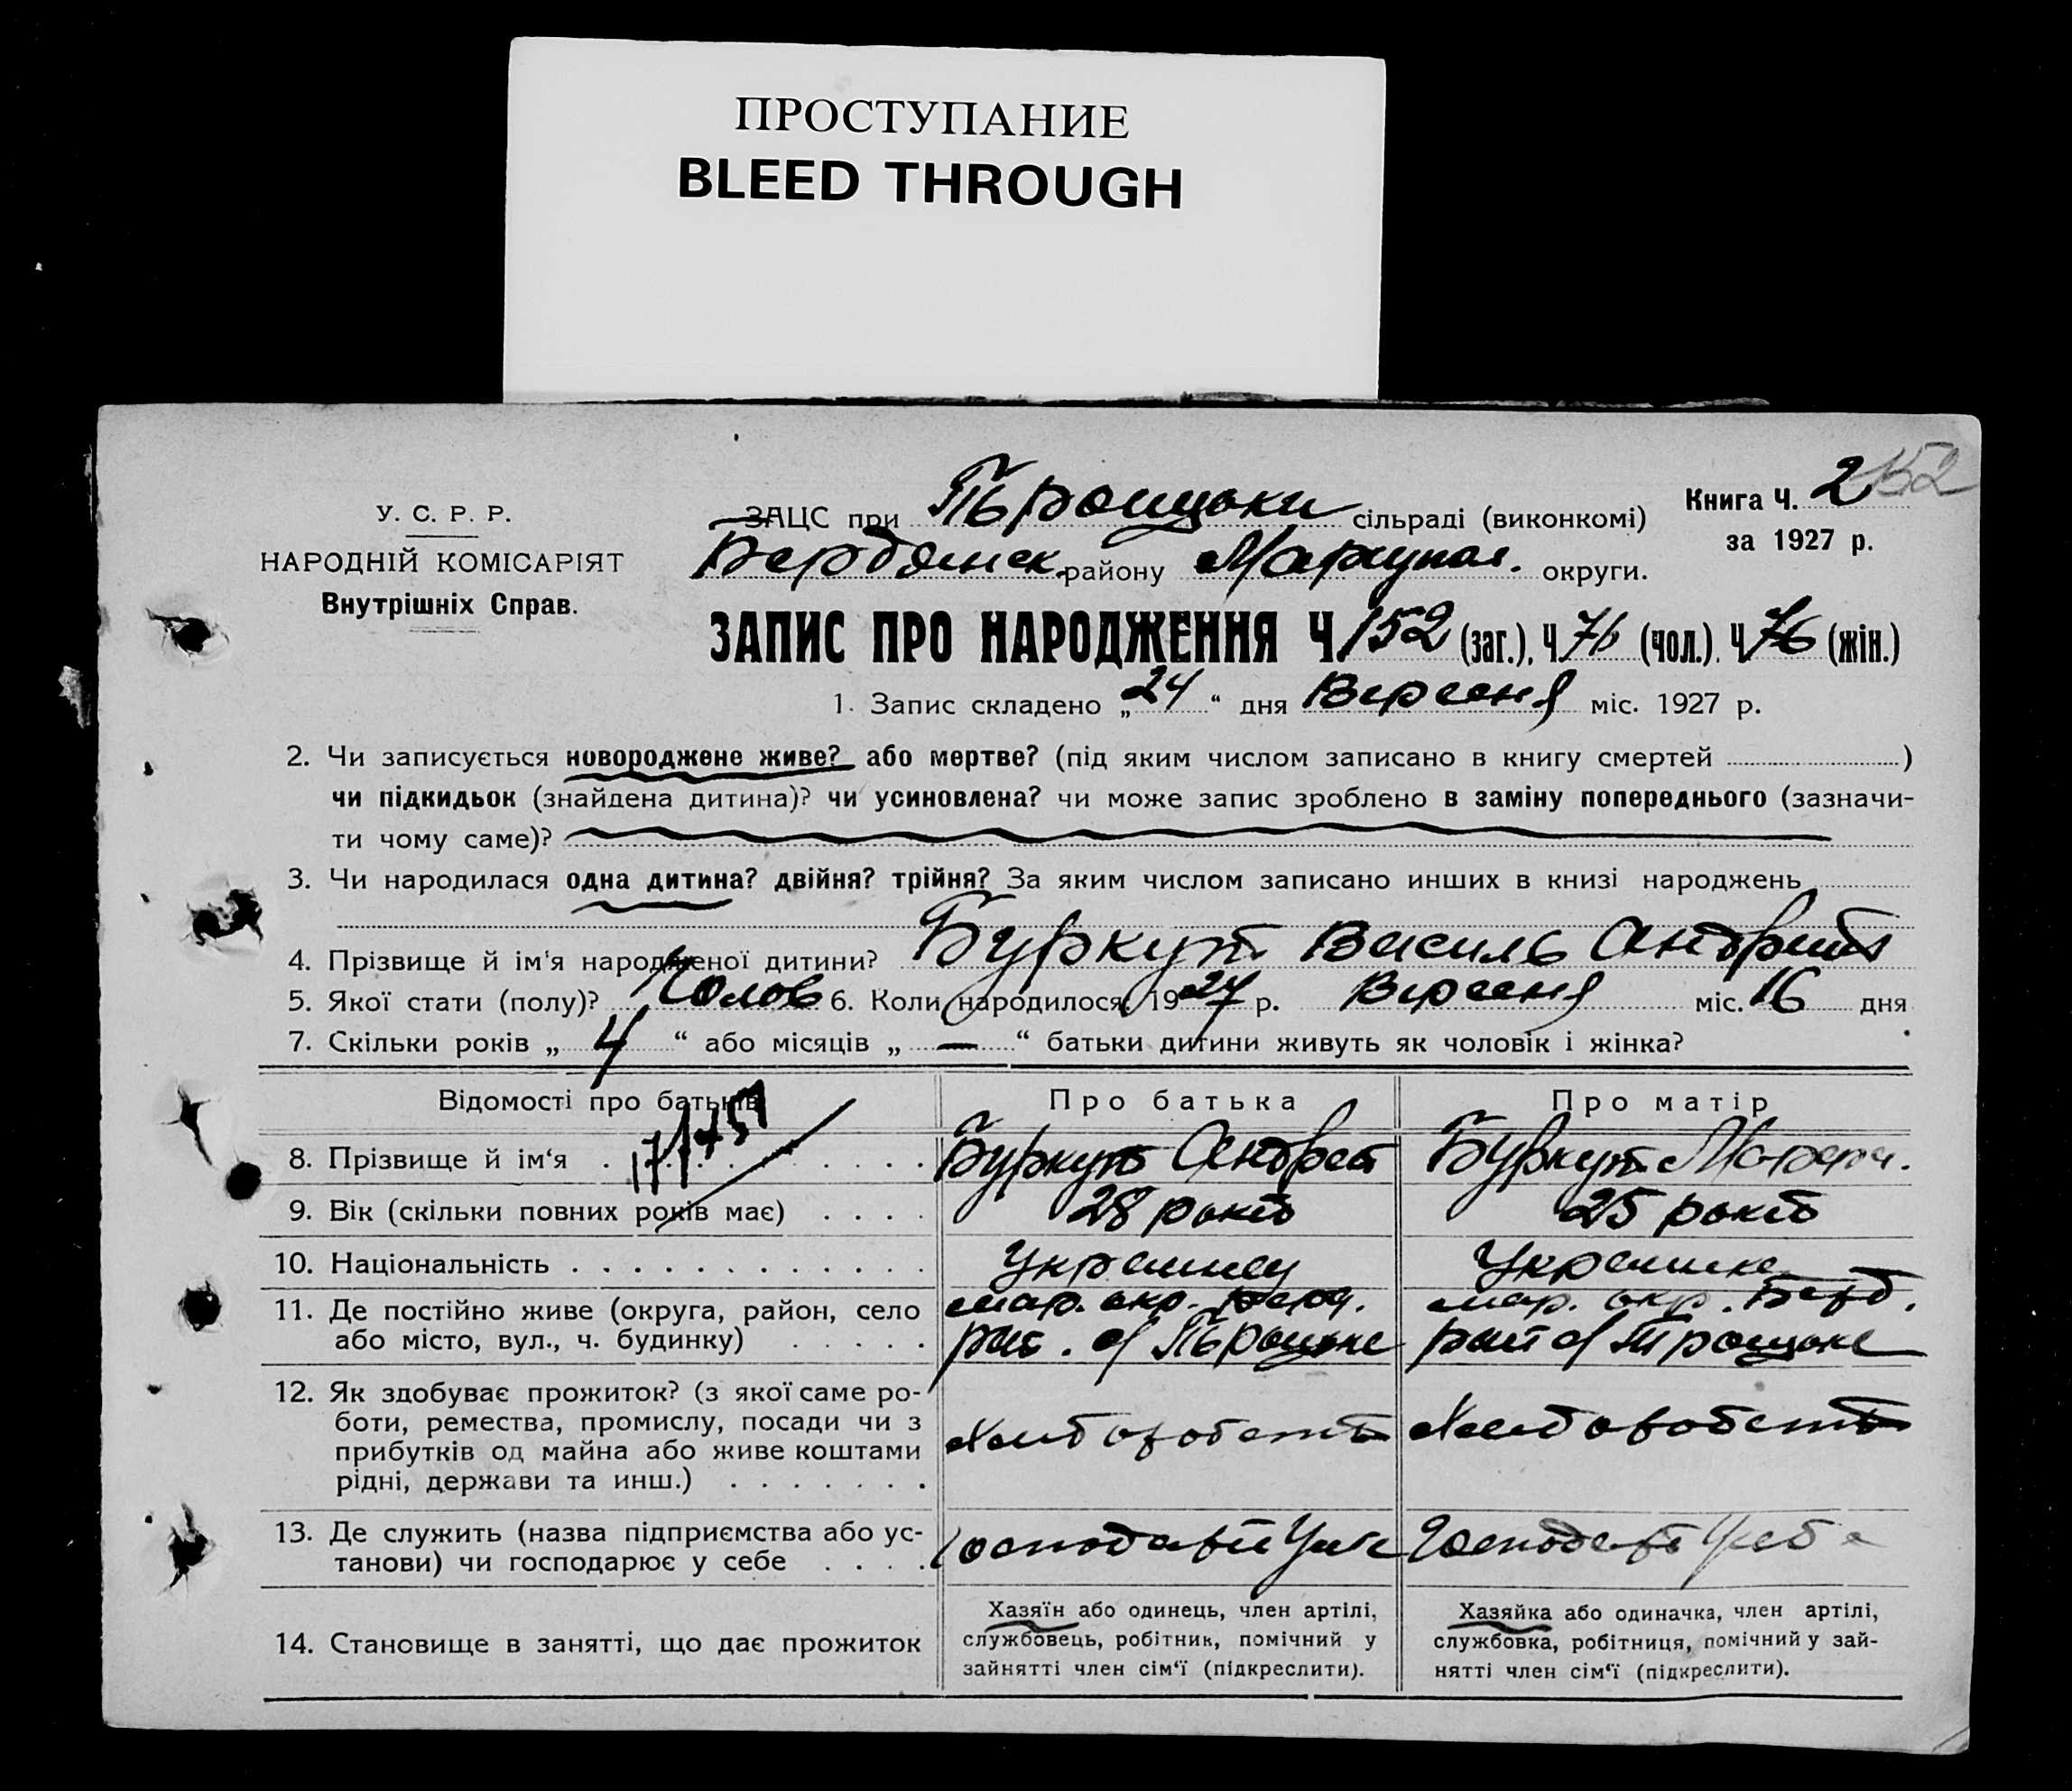 ПРОСТУПАНИЕ
BLEED THROUGH
Книга Ч. 2 152
У. С. Р. Р.
ЗАЦС при Трояцьки сільраді (виконкомі)
за 1927 р.
НАРОДНІЙ КОМІСАРІЯТ
Бердянск. району Мариупол. округи.
Внутрішніх Справ.
ЗАПИС ПРО НАРОДЖЕННЯ Ч 152 (заг.), Ч 76 (чол.). Ч 76 (жін.)
1. Запис складено „24“ дня Вересня міс. 1927 р.
2. Чи записується новороджене живе? або мертве? (під яким числом записано в книгу смертей )
чи підкидьок (знайдена дитина)? чи усиновлена? чи може запис зроблено в заміну попереднього (зазначи-
ти чому саме)?
3. Чи народилася одна дитина? двійня? трійня? За яким числом записано инших в книзі народжень
4. Прізвище й ім'я народженої дитини? Буркут Василь Андрит
5. Якої стати (полу)? Чолов 6. Коли народилося: 1927 р. Вересня міс. 16 дня
7. Скільки років „ 4 “ або місяців „ — “ батьки дитини живуть як чоловік і жінка?
Відомості про батьків Про батька Про матір
8. Прізвище й ім‘я Буркут Андрей Буркут
9. Вік (скільки повних років має) 28 років 25 років
10. Національність Украинец Украинка
11. Де постійно живе (округа, район, село мар. окр. Берд. мар. окр. Берд.
або місто, вул., ч. будинку) рай. с/ Трояцьке рай с/ Трояцьке
12. Як здобуває прожиток? (з якої саме ро-
боти, ремества, промислу, посади чи з
прибутків од майна або живе коштами
рідні, держави та инш.)
Хлиборобств Хлиборобств
13. Де служить (назва підприємства або ус-
танови) чи господарює у себе
14. Становище в занятті, що дає прожиток
Хазяїн або одинець, член артілі,
службовець, робітник, помічний у
зайнятті член сім‘ї (підкреслити).
Хазяйка або одиначка, член артілі,
службовка, робітниця, помічний у зай-
нятті член сім‘ї (підкреслити).